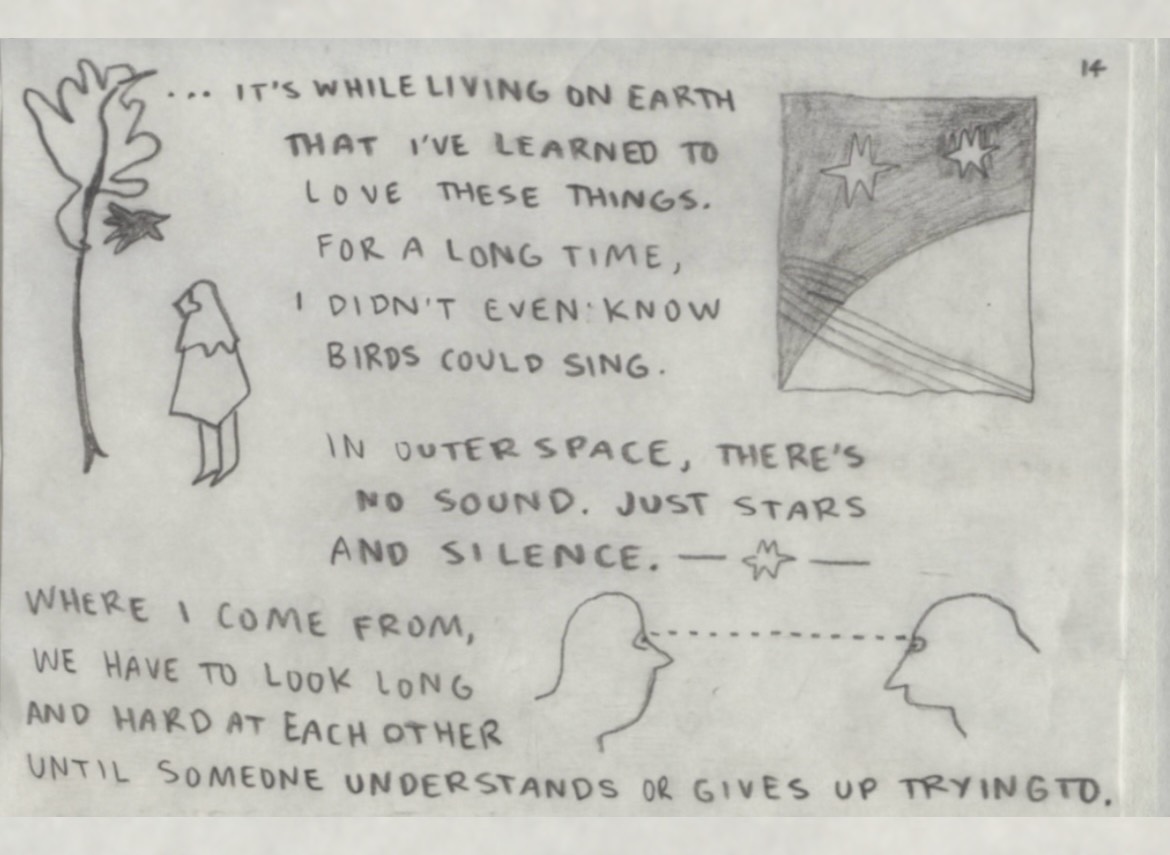 14
... IT'S WHILE LIVING ON EARTH
THAT I'VE LEARNED TO
LOVE THESE THINGS.
FOR A LONG TIME,
I DIDN'T EVEN KNOW
BIRDS COULD SING.
IN OUTER SPACE, THERE'S
NO SOUND. JUST STARS
AND SILENCE.
WHERE I COME FROM,
WE HAVE TO LOOK LONG
AND HARD AT EACH OTHER
UNTIL SOMEONE UNDERSTANDS OR GIVES UP TRYING TO.